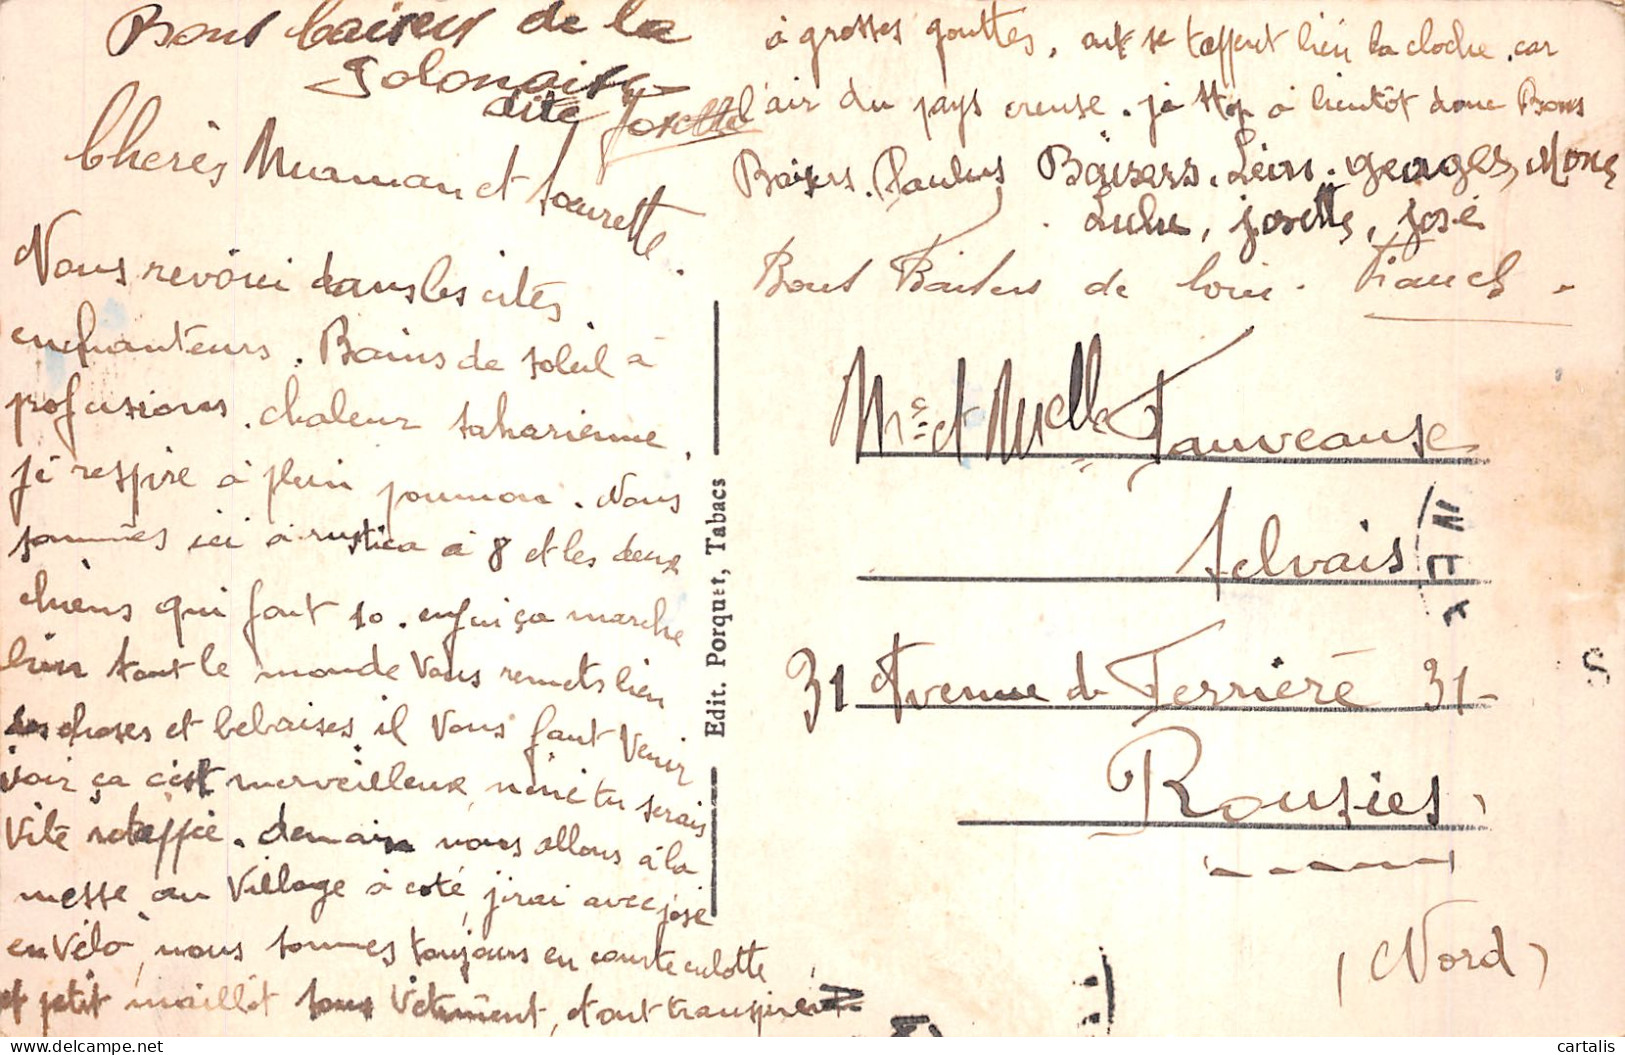 Bons baisers de la
Solonaise
dite Josette
Cherès Muaman et Soeurette.
Nous revoici dans les cités
enchanteurs. Bains de soleil à
profusions. chaleur saharienne.
je respire à plein poumon. Nous
sommes ici à rustica à 8 et les deux
chiens qui font 10. enfin ça marche
bien tout le monde Vous remets bien
des choses et bebaises il Vous faut Venir
voir ça c'est merveilleux, néné tu serais
Vite rotaffié. demain nous allons à la
messe au Village à coté, j'irai avec josé
en Vélo, nous sommes toujours en courte culotte
et petit maillot sous Vetement, et tout transpirent
à grosses gouttes, aux se taffent bien la cloche. car
l'air du pays creuse. je stop à bientôt donc Bons
Baisers. Paulus Baisers. Léon. georges, Mone
Lulu, josette, josé
Bons Baisers de Loin. Franck
Edit. Porquet, Tabacs
Me et Melle Fauveause
Selvais
31 Avenue de Ferrière 31
Rousies
(Nord)
cartalis